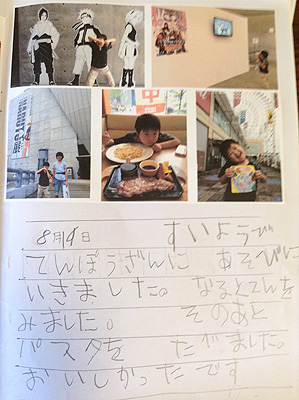 8月9日 すいようび
てんぽうざんに あそびに
いきました。 なるとてんを
みました。 そのあと
パスタを たべました。
おいしかったです